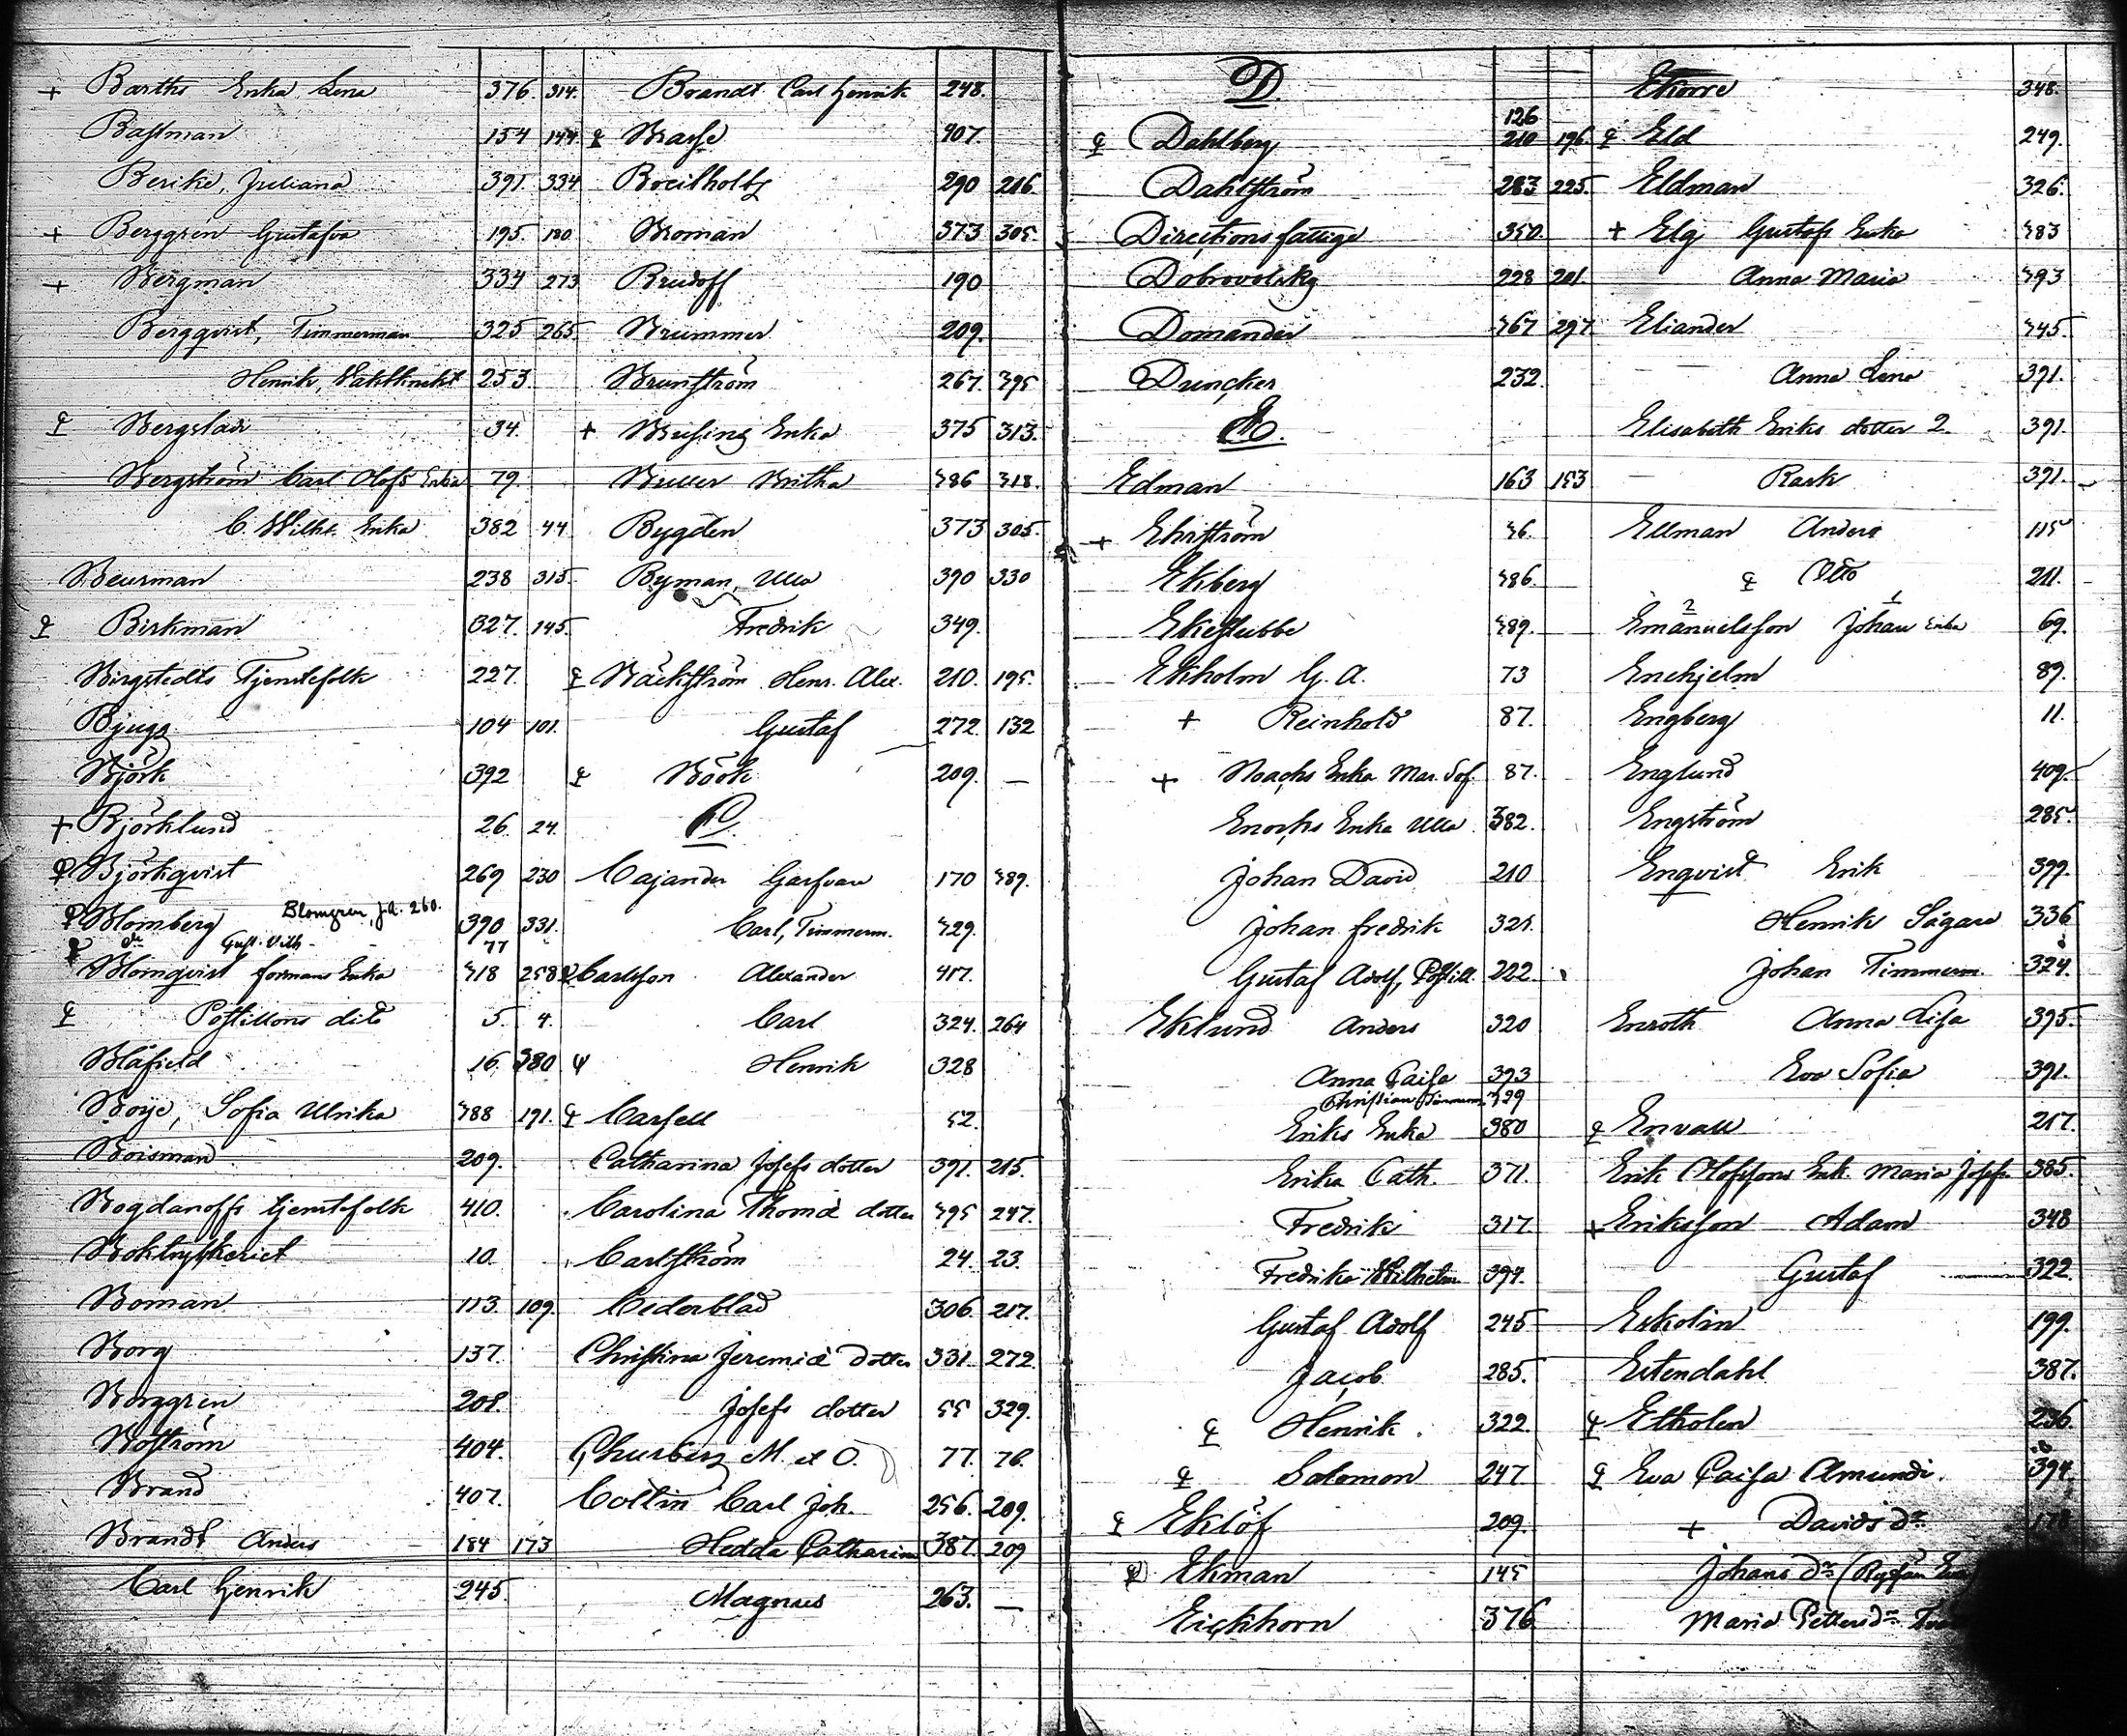 + Barths Enka Lena 376. 314.
Bastman 154 144.
Berike, Juliana 391. 334
+ Berggren Gustafva 195. 180.
+ Bergman 334 273
Bergqvist, Timmerman 325 265.
Henrik, Vaktknekt 253.
Bergstad 34.
Bergström Carl Olofs Enka 79.
C. Wilh. Enka 382 44
Beurman 238 315.
Birkman 327. 145.
Birgstedts Tjenstefolk 227.
Bjugg 104 101.
Björk 392
+ Björklund 26. 24.
Björkqvist 269 230
Blomgren, J.A. 260.
Blomberg 390 331.
do Gust. Vilh. 77
Blomqvist formans Enka 318 258
Postillons dito 5. 4.
Blåfield 16. 380
Boije, Sofia Ulrika 388 191.
Boisman 209.
Bogdanoffs tjenstefolk 410.
Boktryckeriet 10.
Boman 113. 109.
Borg 137.
Borggren 208.
Boström 404.
Brand 407.
Brandt Anders 184 173
Carl Henrik 245.
Brandt Carl Henrik 248.
Brasse 407.
Breitholtz 290 216.
Broman 373 305.
Brudoff 190
Brummer 209.
Brunström 267. 395
+ Brusing Enka 375 313.
Buller Britha 386 318.
Bygden 373 305.
Byman, Ulla 390 330
Fredrik 349.
Bäckström Henr. Alex. 210. 195.
Gustaf 272. 132
Böök 209. —
C.
Cajander Garfvare 170 389.
Carl, Timmerm. 329.
Carlsson Alexander 417.
Carl 324. 264
Henrik 328
Carsell 52.
Catharina Josefs dotter 391. 215.
Carolina Thomæ dotter 395 247.
Carlström 24. 23.
Cederblad 306. 217.
Christina Jeremiæ dotter 331. 272.
Josefs dotter 55 329.
Churberg M. et O. 77. 76.
Collin Carl Joh. 256. 209.
Hedda Catharina 387. 209
Magnus 263. —
D.
126
Dahlberg 210 196.
Dahlström 283 225.
Directions fattige 350.
Dobrovolsky 228 201.
Domander 367 297.
Duncker 232.
E.
Edman 163 153
+ Ehrström 36.
Ekberg 386.
Ekestubbe 389.
Ekholm G. A. 73
+ Reinhold 87.
+ Noachs Enka Mar. Sof. 87.
Enochs Enka Ulla 382.
Johan David 210
Johan Fredrik 321.
Gustaf Adolf, Postill. 222.
Eklund Anders 320
Anna Caisa 393
Christian Timmerm. 329
Eriks Enka 380
Erika Cath. 371.
Fredrik 317.
Fredrika Wilhelm. 394.
Gustaf Adolf 245
Jacob 285.
Henrik. 322.
Salomon 247
Eklöf 209.
Ekman 145
Eickhorn 376
Ekorre 348.
Eld 249.
Eldman 326.
+ Elg Gustafs Enka 383
Anna Maria 393
Eliander 345.
Anna Lena 391.
Elisabeth Eriks dotter 2. 391.
Rask 391.
Ellman Anders 115
Otto 211.
Emanuelsson Johan Enka 69.
Enehjelm 89.
Engberg 11.
Englund 409.
Engström 285.
Enqvist Erik 399.
Henrik Sågare 336
Johan Timmerm. 324.
Enroth Anna Lisa 395.
Eva Sofia 391.
Envall 217.
Erik Olofssons Enk. Maria Josefs. 385.
+ Eriksson Adam 348
Gustaf 322.
Eskolin 199.
Estendahl 387.
Etholen 236.
Eva Caisa Amundi. 394.
+ Davids dr. 178
Johans dr (
Maria Petters dr.